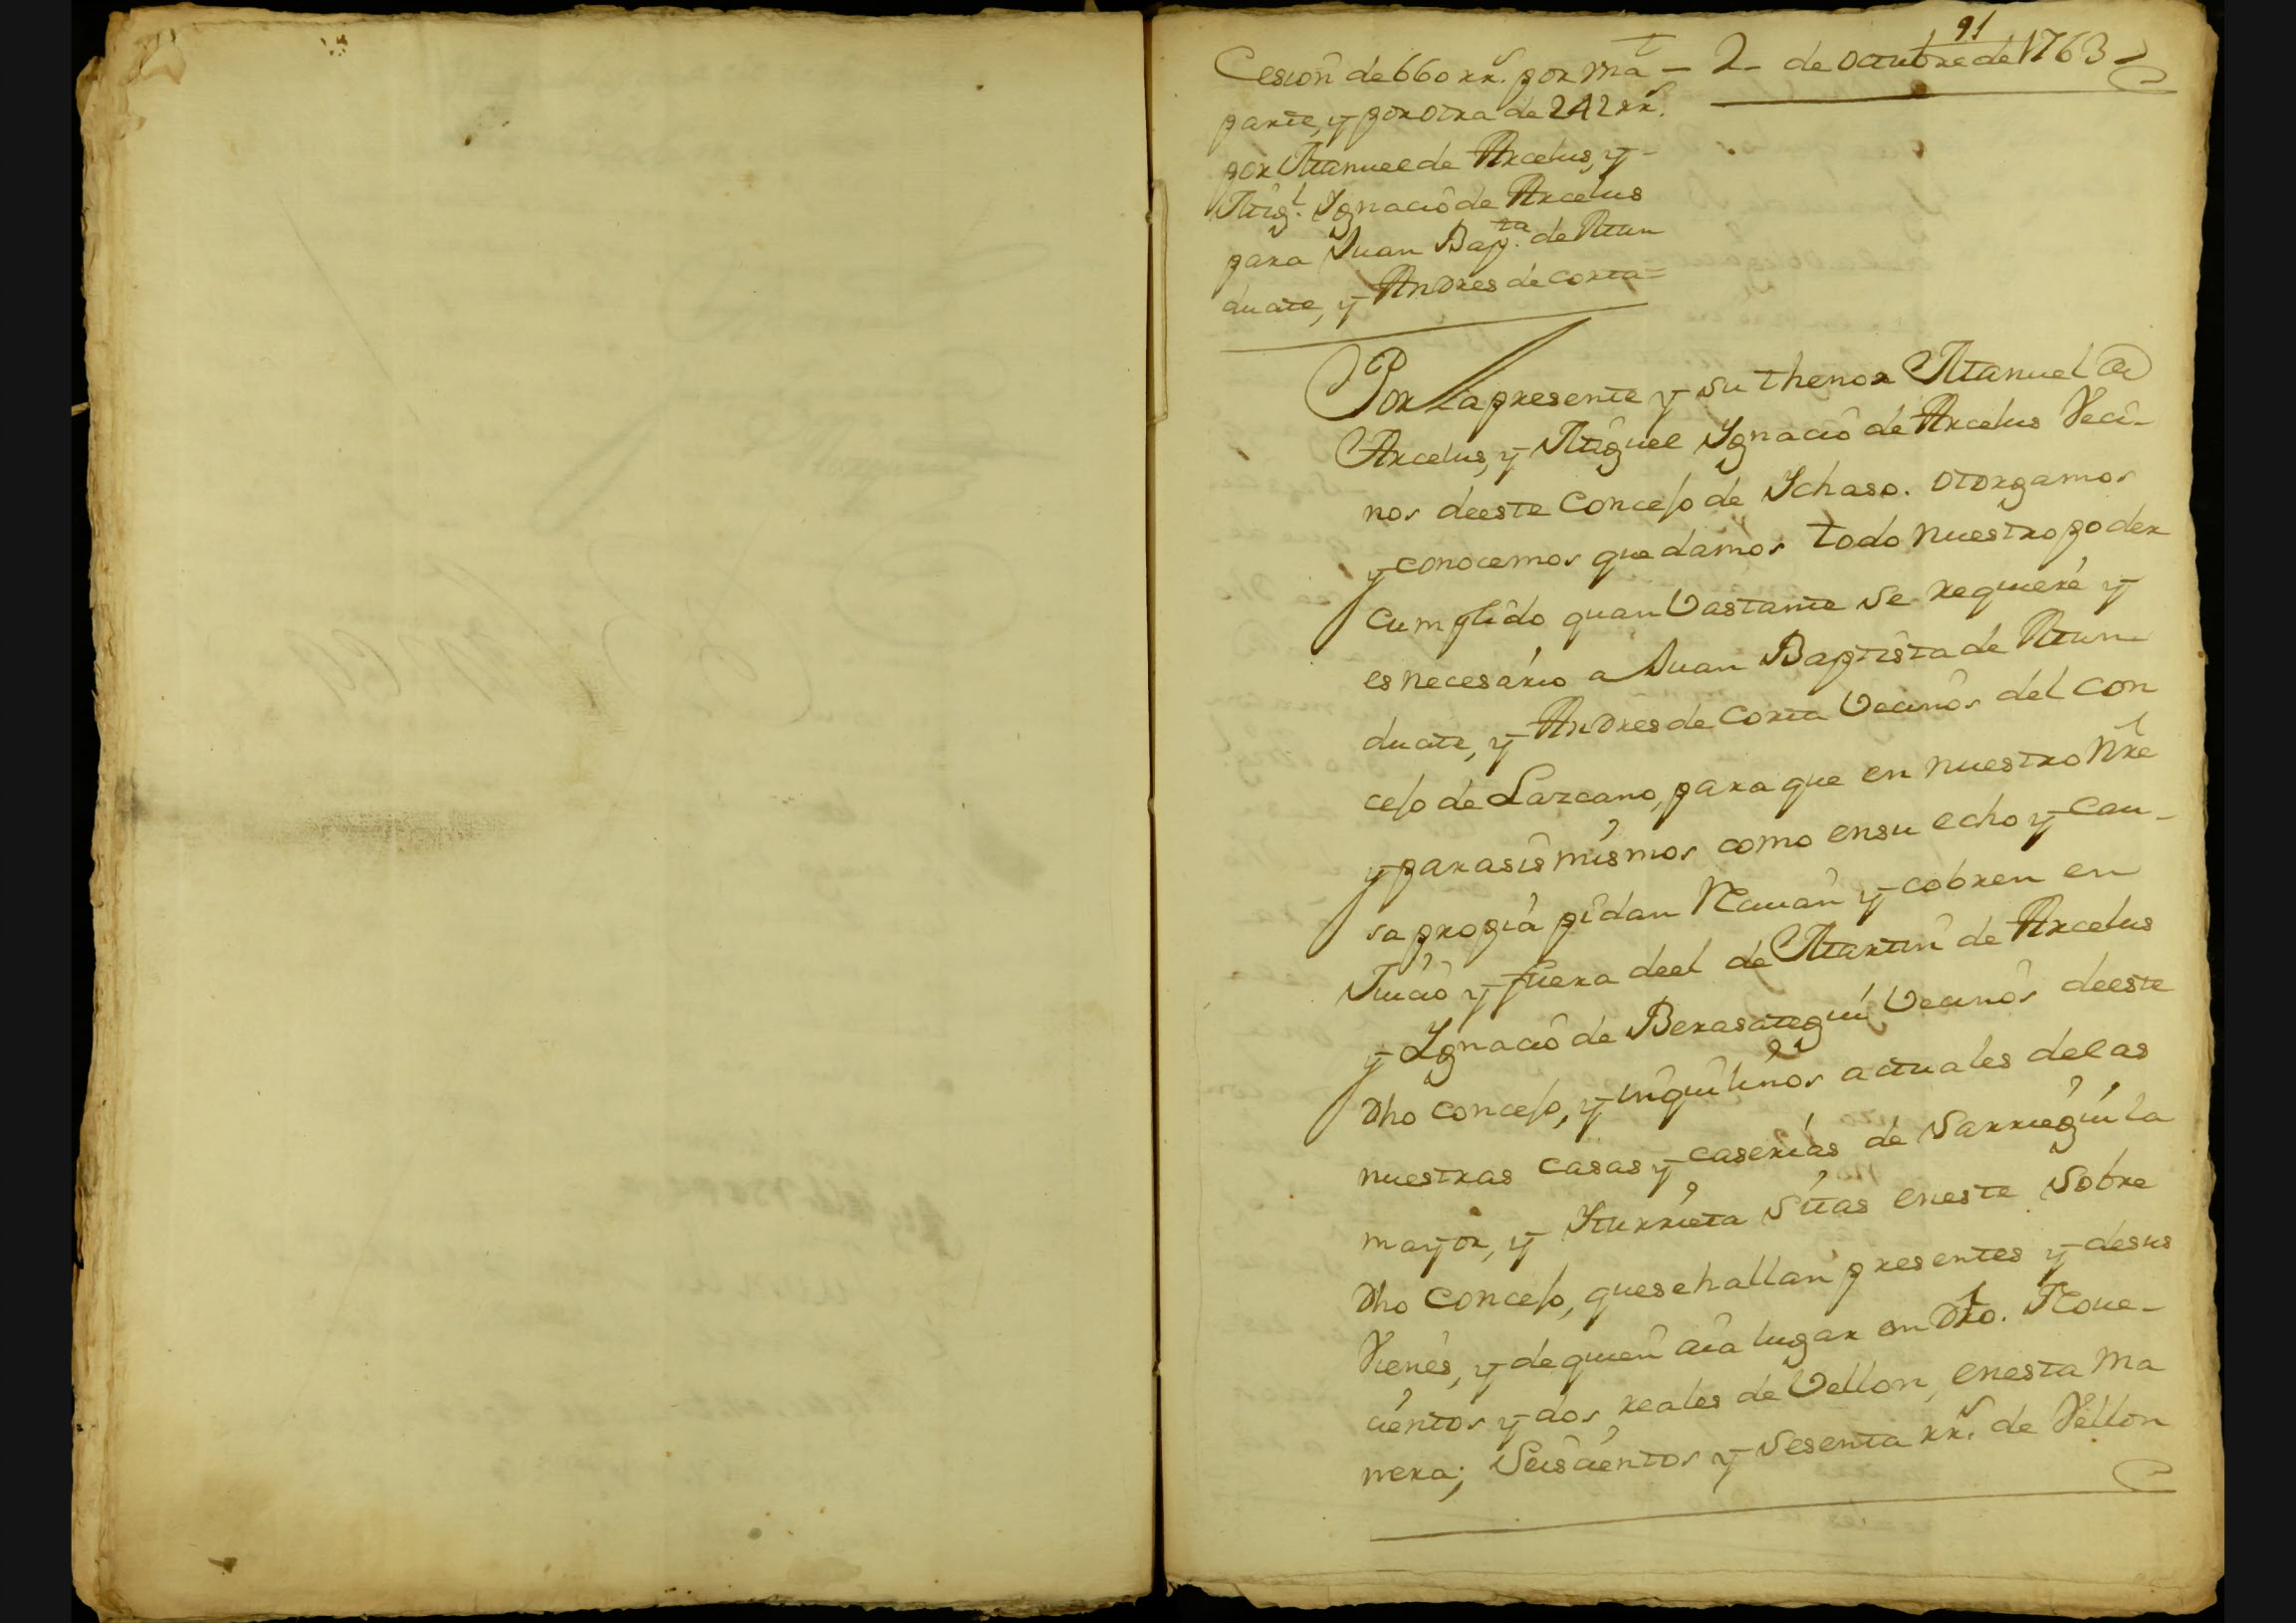 91
Cesion de 660 rrs. por una – 2 – de Octubre de 1763
parte, y por otra de 242 rrs.
por Manuel de Arcelus, y
Migl. Ygnacio de Arcelus
para Juan Bapta. de Mun
duate, y Andres de Corta =
Por la presente y su thenor Manuel de
Arcelus, y Miguel Ygnacio de Arcelus Veci-
nos deeste Concejo de Ychaso. otorgamos
y conocemos que damos todo nuestro poder
Cumplido quan bastante se requiere y
es necesario a Juan Baptista de Mun
duate, y Andres de Corta vecinos del con
cejo de Lazcano, para que en nuestro Nre
y para sis mismos como en su echo y cau-
sa propia pidan Recivan y cobren en
Juicio y fuera deel de Martin de Arcelus
y Ygnacio de Berasategui vecinos deeste
dho concejo, y inquilinos actuales delas
nuestras casas y caserias de Sarriegui la
mayor, y Yturrieta sitas eneste sobre
dho concejo, quesehallan presentes y desus
Vienes, y de quien aia lugar en dro. Nove-
cientos y dos reales de Vellon, enesta ma
nera; Seiscientos y sesenta rrs. de Vellon